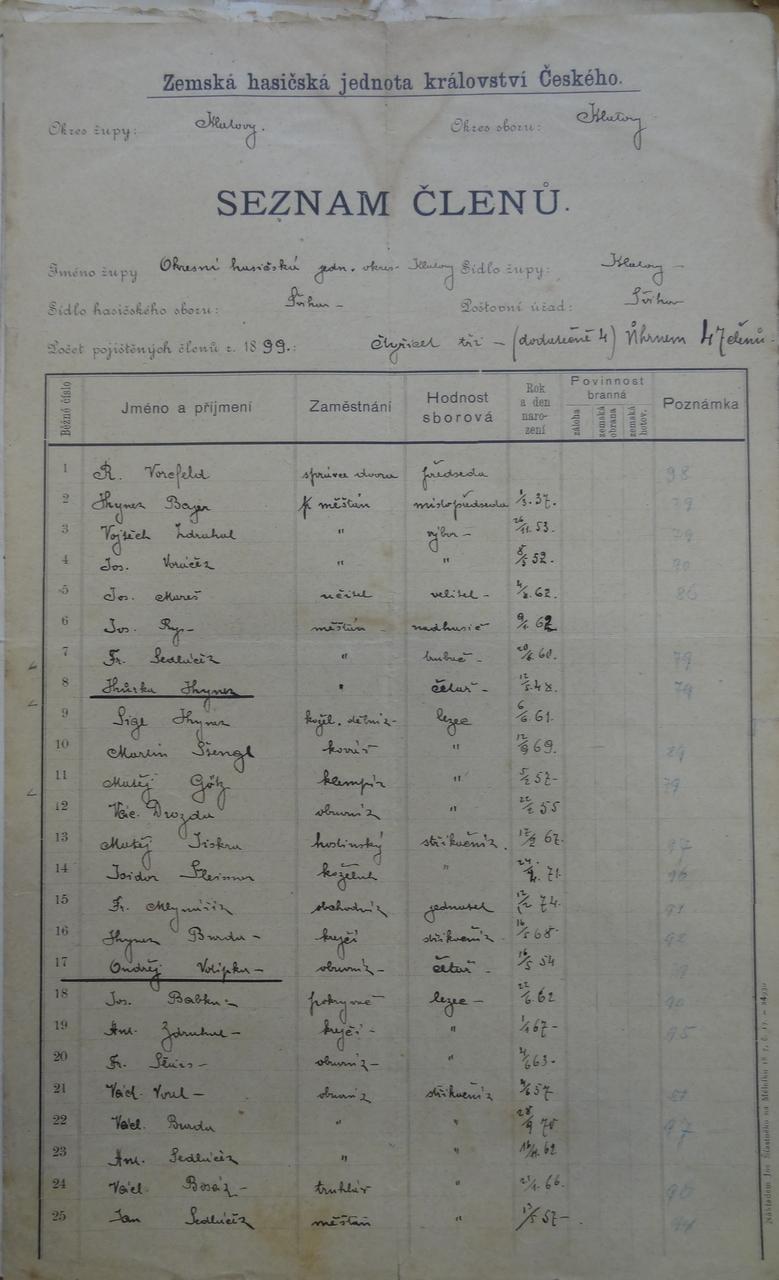 Zemská hasičská jednota království Českého.
Okres župy: Klatovy. Okres sboru: Klatovy
SEZNAM ČLENŮ.
Jméno župy Okresní hasičská jedn. okres. Klatovy Sídlo župy: Klatovy –
Sídlo hasičského sboru: Švihov – Poštovní úřad: Švihov
Počet pojištěných členů r. 1899.: čtyřicet tři – (dodatečně 4) Úhrnem 47 členů.
Běžné číslo Jméno a příjmení Zaměstnání Hodnost sborová Rok a den narození Povinnost branná záloha zemská obrana zemská hotov. Poznámka
1 R. Vorefeld správce dvora předseda 98
2 Hynek Bayer měšťan místopředseda 1/3. 37. 79
3 Vojtěch Zdruhal " výbor – 26/11. 53. 79
4 Jos. Voráček " " 8/5 52. 90
5 Jos. Mareš učitel velitel – 4/8. 62. 86
6 Jos. Rys – měšťan – nadhasič 9/1. 62
7 Fr. Sedláček " trubač – 20/6. 60. 79
8 Hůrka Hynek " četař – 12/5. 48. 79
9 Hynek kožel. dělník – lezec 6/6. 61.
10 Martin Štengl kovář " 12/9 69. 89
11 Matěj Götz klempíř " 5/2 57 – 79
12 Vác. Drozda obuvník " 22/2 55
13 Matěj Jiskra hostinský stříkačník. 17/2 67. 97
14 Isidor Fleissner koželuh " 24/4. 71. 96
15 Fr. Mlynářík obchodník jednatel 12/2 74. 91
16 Hynek Burda – krejčí stříkačník 16/5 68. 92
17 Ondřej Volípka – obuvník – četař – 16/5 54
18 Jos. Babka – pokrývač lezec – 22/6. 62 90
19 Ant. Zdruhal – krejčí – " 1/1 67 – 95
20 Fr. – obuvník – " 4/6 63 –
21 Václ. Vorel – obuvník stříkačník 9/6 57 81
22 Václ. Burda " " 28/9 70 97
23 Ant. Sedláček " " 16/11. 62
24 Václ. Bosák – truhlář " 21/1. 66. 90
25 Jan Sedláček měšťan " 13/5 57 – 94